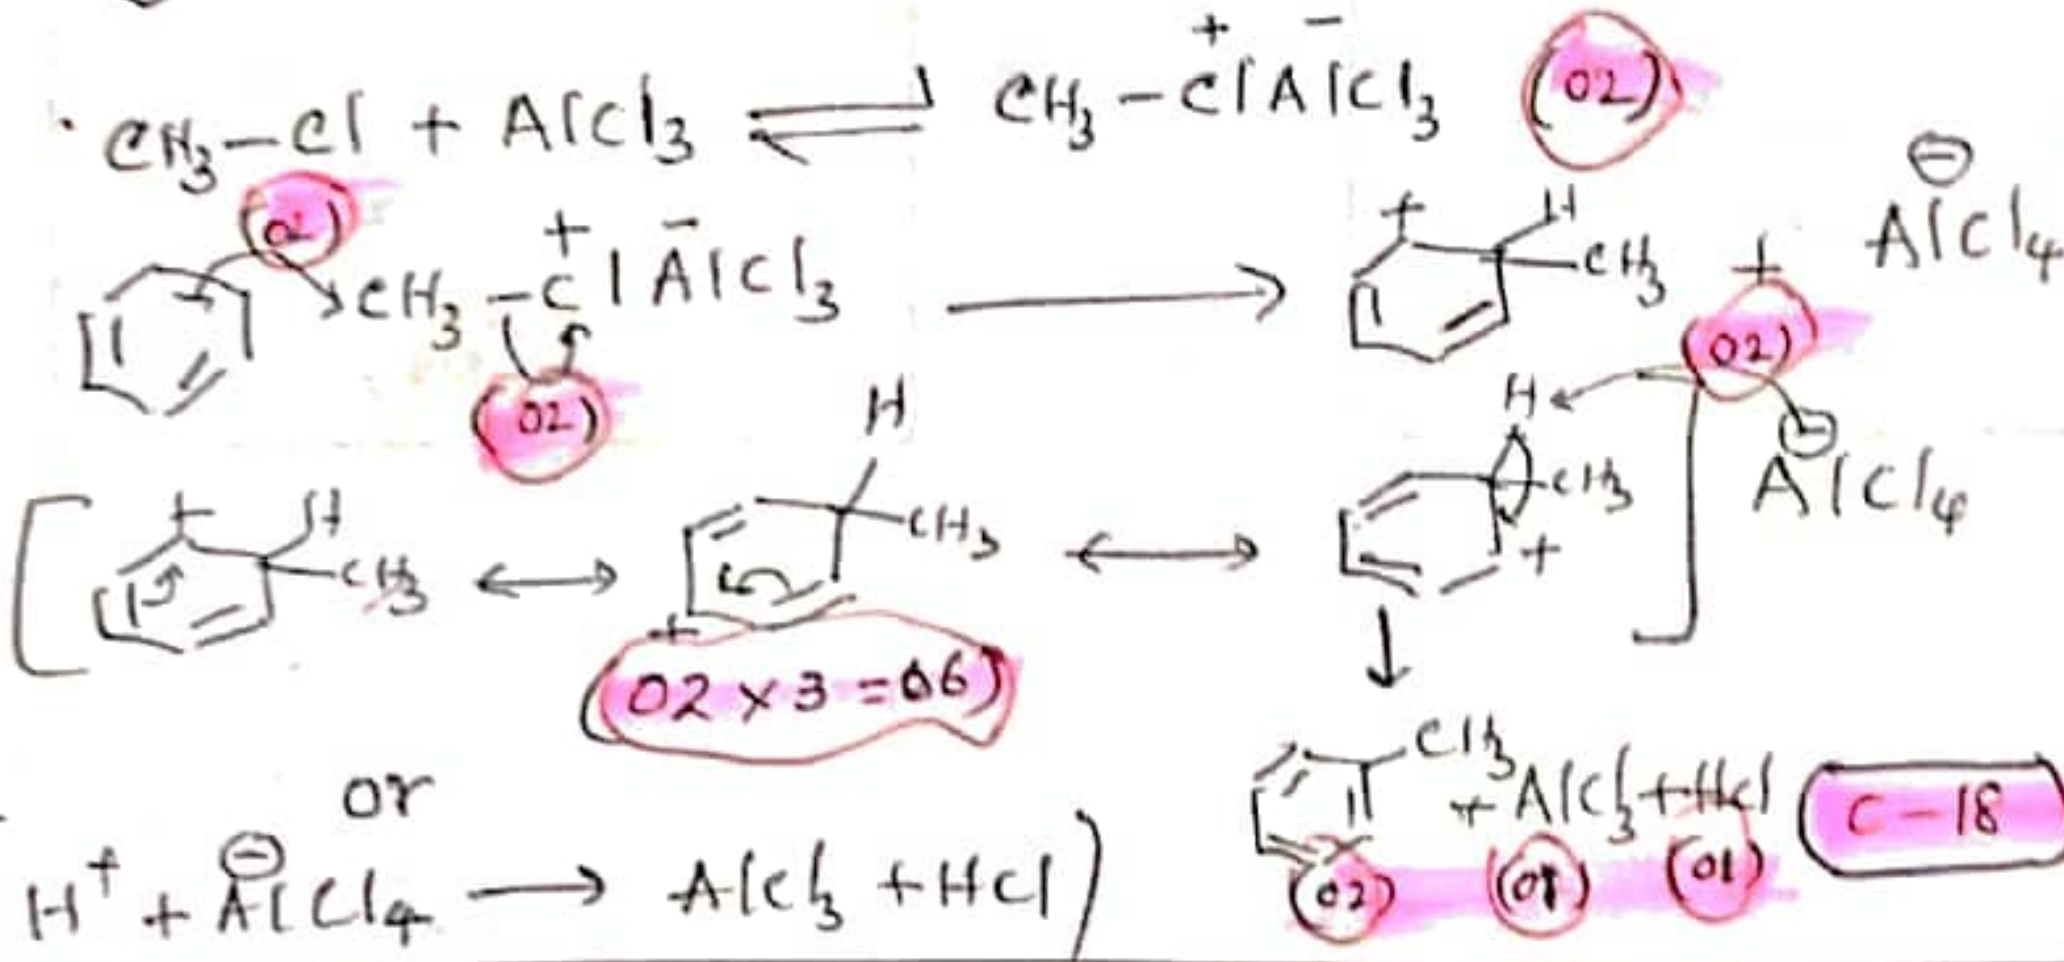 CH₃–Cl + AlCl₃ ⇌ CH₃–Cl⁺Al⁻Cl₃ (02)
(02)
CH₃–Cl⁺Al⁻Cl₃ → + H CH₃ + AlCl₄⊖
(02) (02)
[ + H CH₃ ↔ H CH₃ + ↔ H CH₃ + ] AlCl₄⊖
(02 × 3 = 06) ↓
CH₃ + AlCl₃ + HCl C – 18
(02) (01) (01)
or
H⁺ + AlCl₄⊖ → AlCl₃ + HCl )